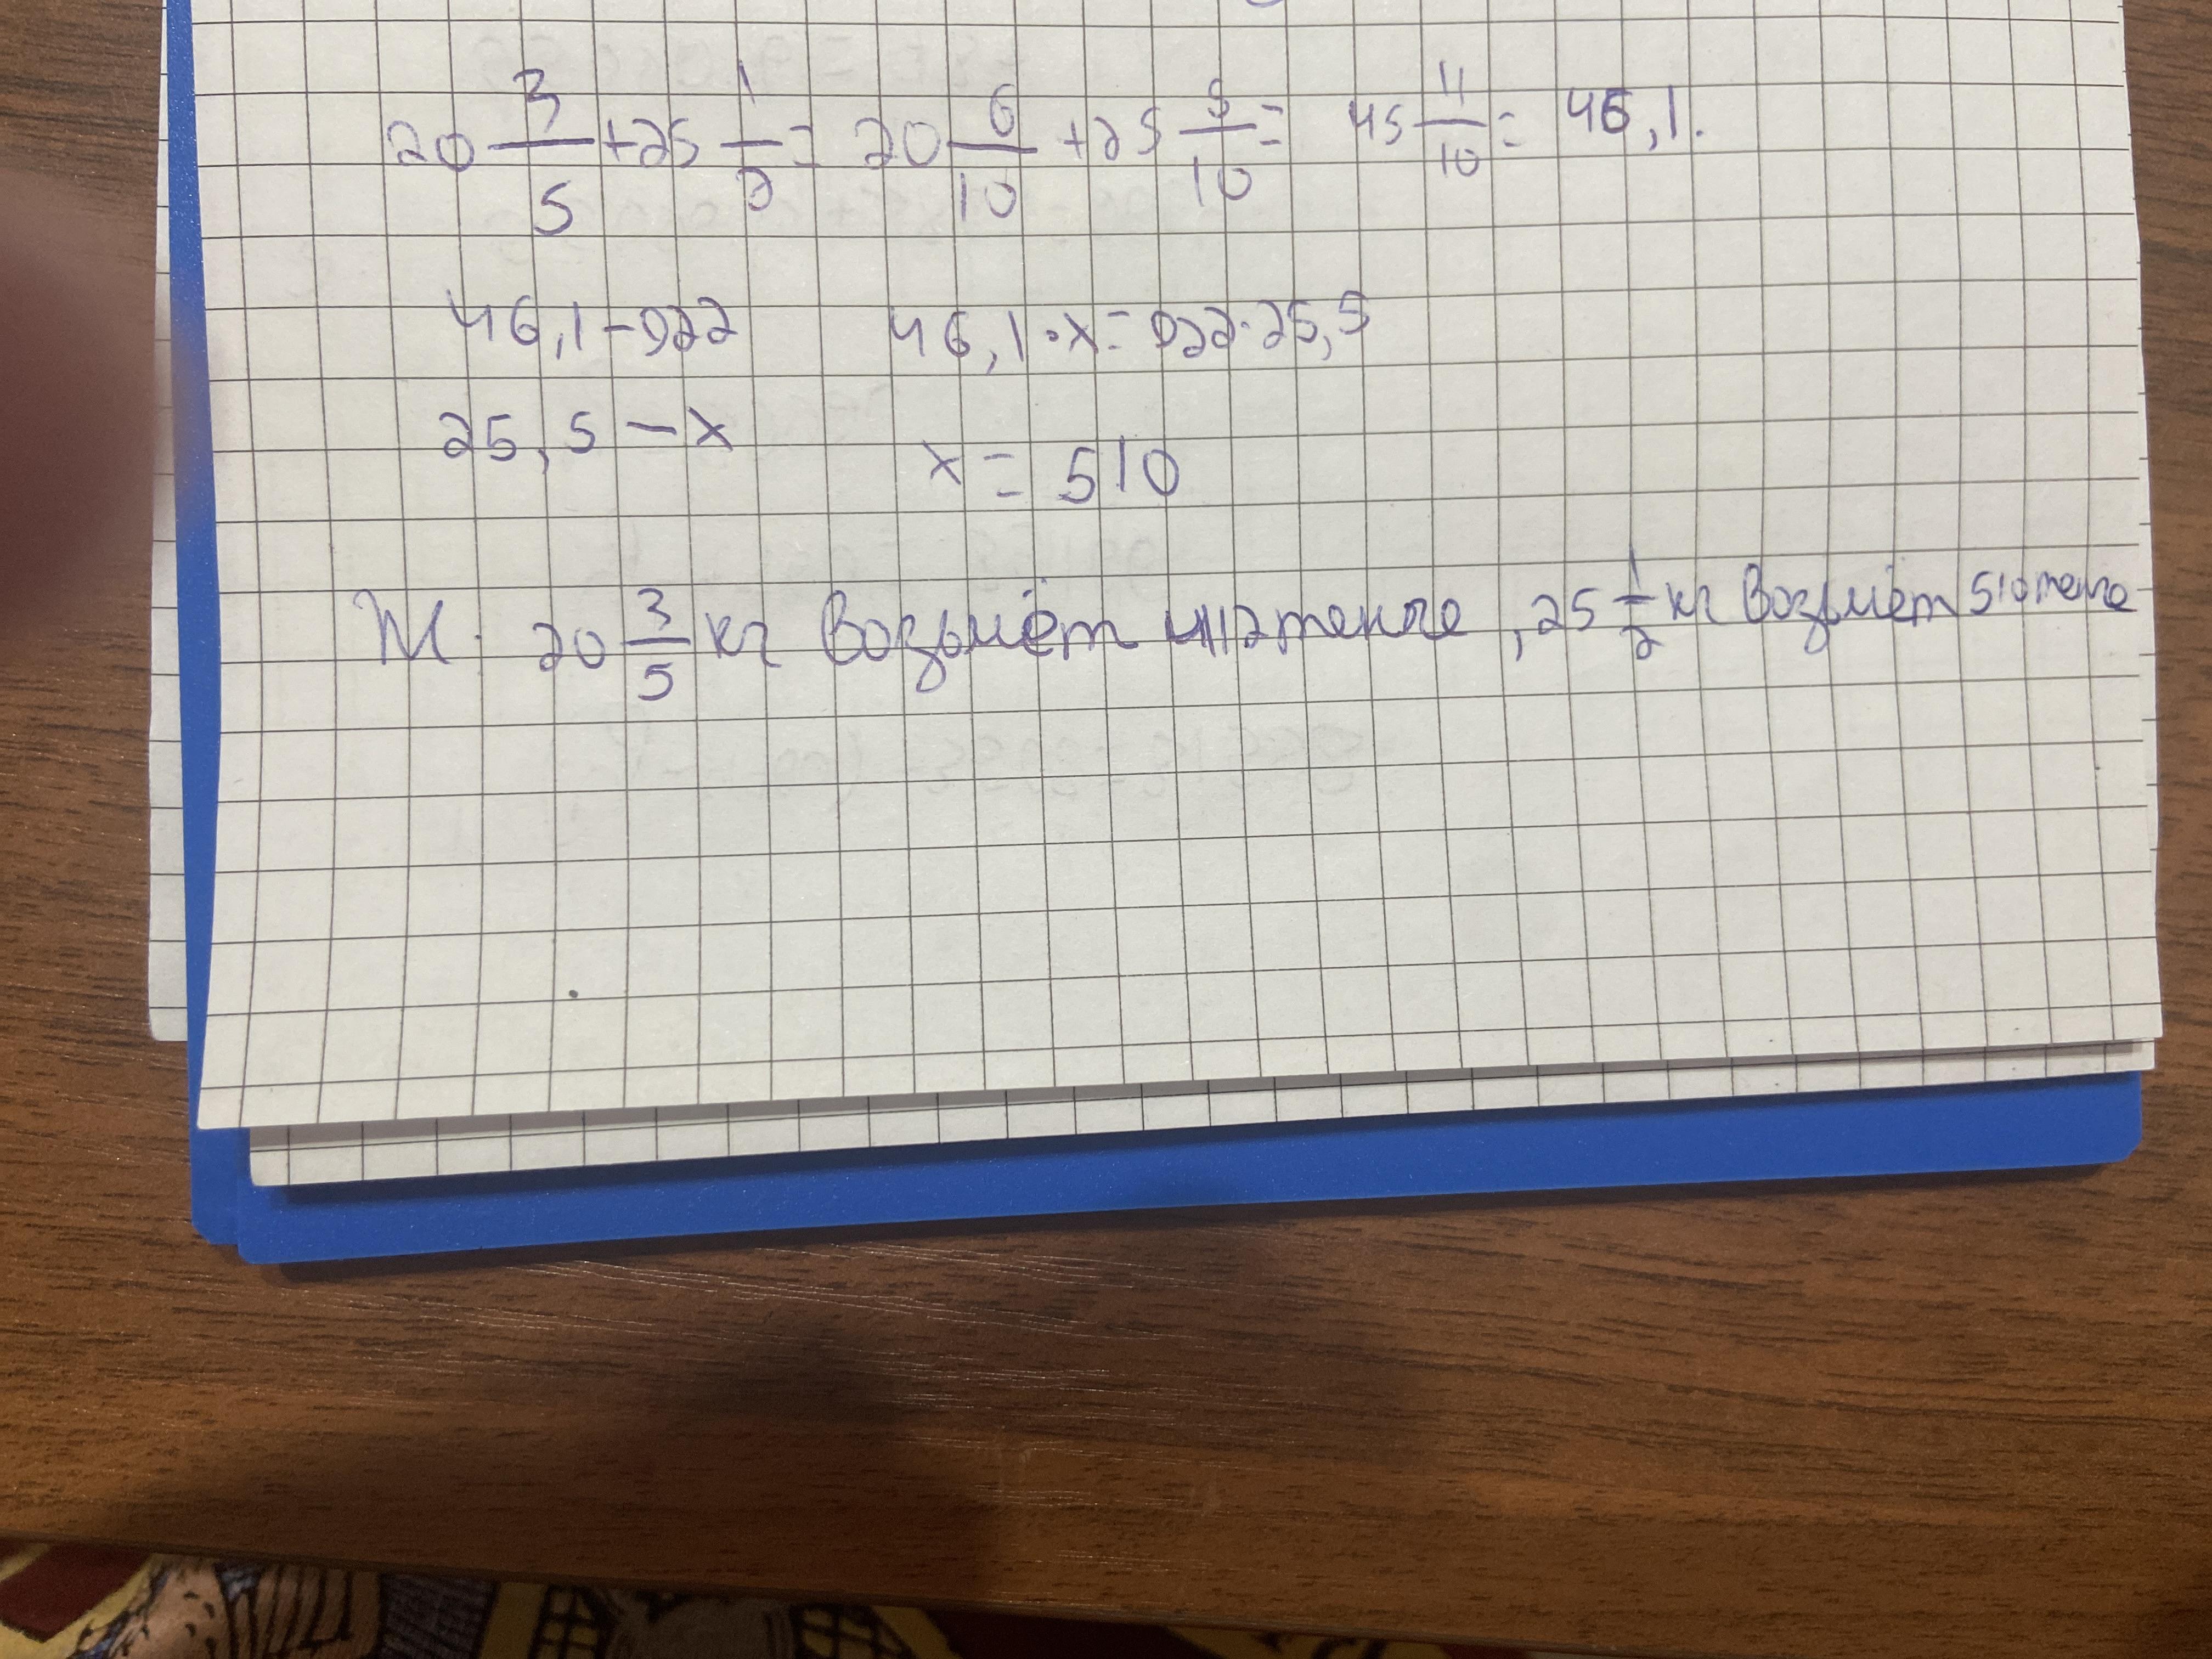 20 3/5 + 25 1/2 = 20 6/10 + 25 5/10 = 45 11/10 = 46,1.
46,1 – 922 46,1 · x = 922 · 25,5
25,5 – x x = 510
Ж. 20 3/5 кг возьмём 412 тенге, 25 1/2 кг возьмём 510 тенге